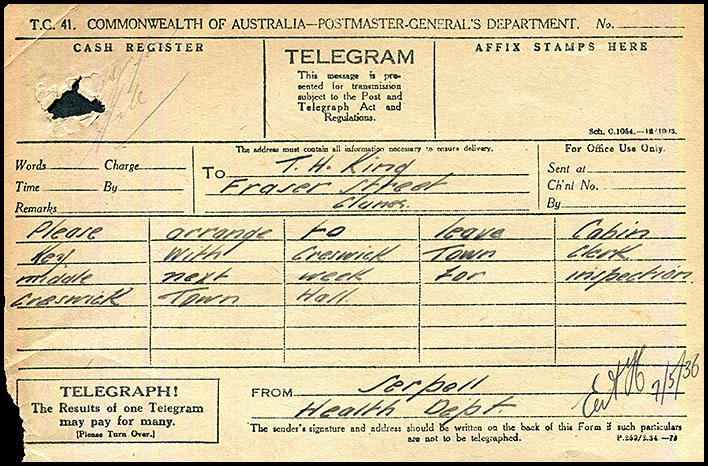 T.C. 41. COMMONWEALTH OF AUSTRALIA—POSTMASTER-GENERAL'S DEPARTMENT. No.
CASH REGISTER
TELEGRAM
This message is pre-
sented for transmission
subject to the Post and
Telegraph Act and
Regulations.
AFFIX STAMPS HERE
Sch. C.1054.—12/1933.
Words Charge
Time By
Remarks
The address must contain all information necessary to ensure delivery.
To T. H. King
Fraser Street
Clunes.
For Office Use Only.
Sent at
Ch'nl No.
By
Please arrange to leave Cabin
Key With Creswick Town Clerk
middle next week for inspection
Creswick Town Hall
TELEGRAPH!
The Results of one Telegram
may pay for many.
[Please Turn Over.]
FROM Serpell
Health Dept.
7/5/36
The sender's signature and address should be written on the back of this Form if such particulars
are not to be telegraphed.